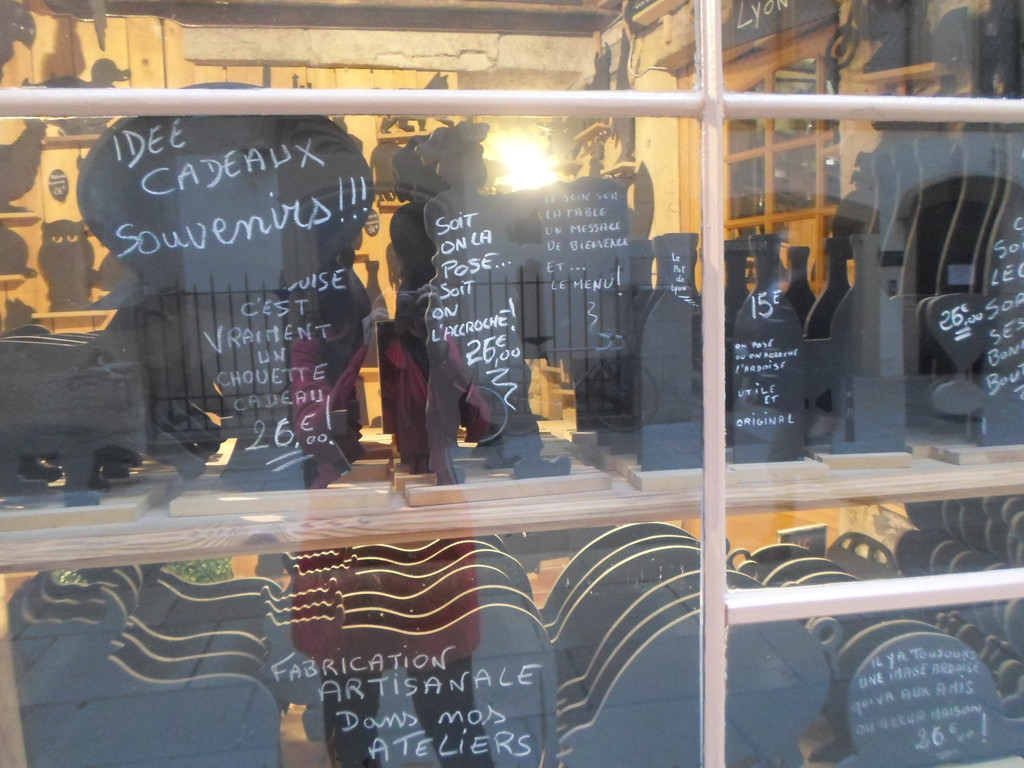 LYON
IDEE
CADEAUX
SOUVENIRS!!!
C'EST
VRAIMENT
UN
CHOUETTE
CADEAU!
26€,00
SOIT
ON LA
POSE...
SOIT
ON
L'ACCROCHE!
26€,00
LA TABLE
UN MESSAGE
DE BIENVENUE
ET...
LE MENU!
Le
Pot de
Lyon
15€
ON POSE
OU ON ACCROCHE
L'ARDOISE
UTILE
ET
ORIGINAL
26€,00
FABRICATION
ARTISANALE
Dans nos
ATELIERS
IL Y A TOUJOURS
UNE IMAGE ARDOISE
QUI VA AUX AMIS
OU A LEUR MAISON
26€,00!